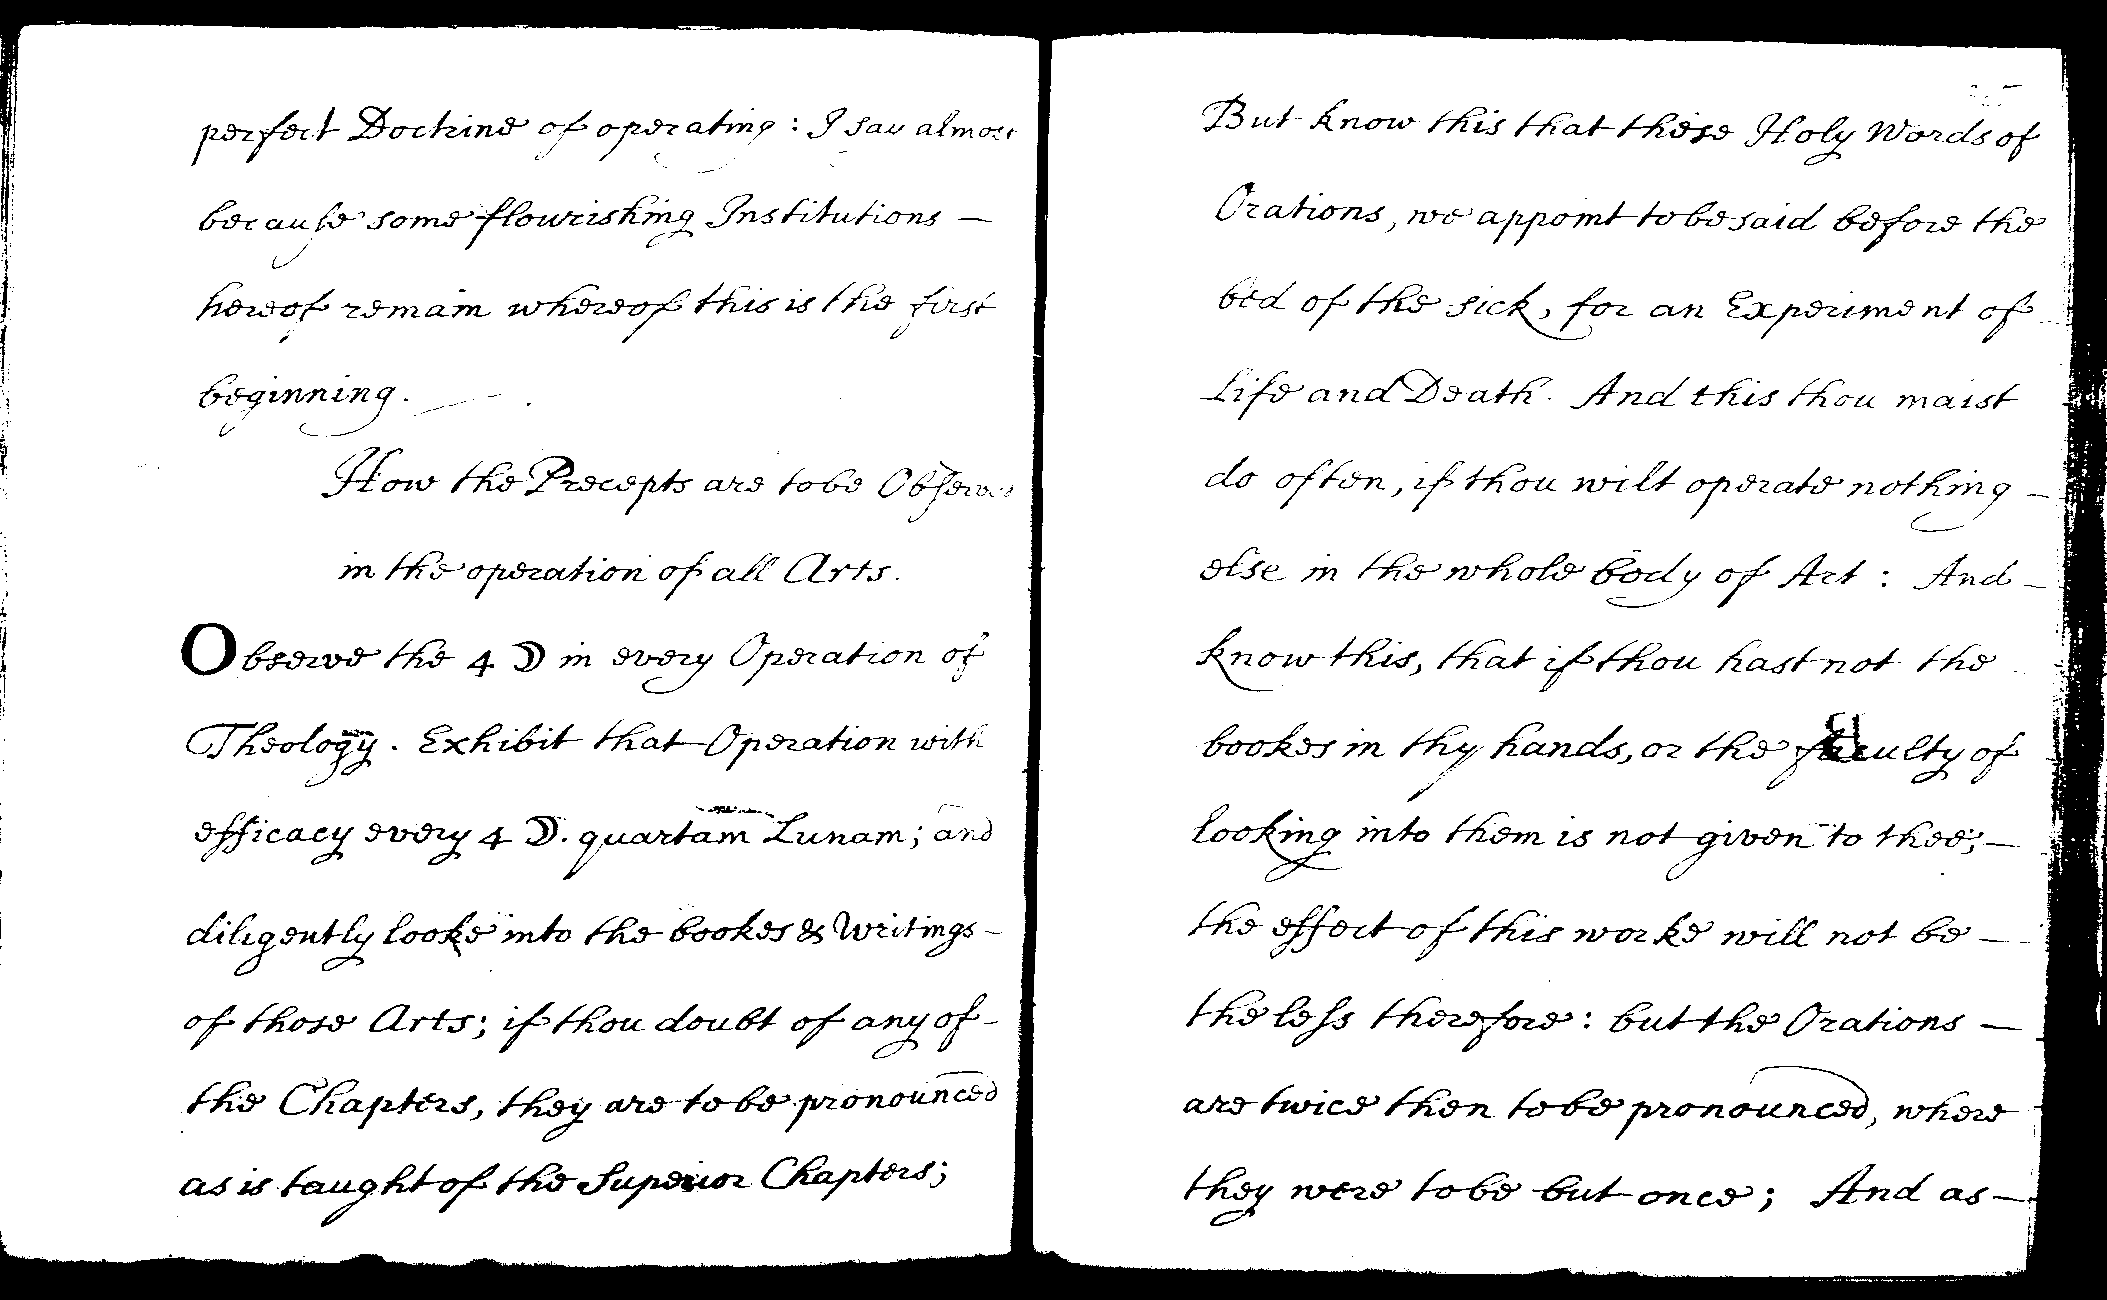 perfect Doctrine of operating: I say almost
because some flourishing Institutions —
hereof remain whereof this is the first
beginning.
How the Precepts are to be Observed
in the operation of all Arts.
Observe the 4 ☽ in every Operation of
Theology. Exhibit that Operation with
efficacy every 4 ☽. quartam Lunam; and
diligently looke into the bookes & Writings —
of those Arts; if thou doubt of any of —
the Chapters, they are to be pronounced
as is taught of the Superior Chapters;
But know this that these Holy Words of
Orations, we appoint to be said before the
bed of the sick, for an Experiment of
Life and Death. And this thou maist
do often, if thou wilt operate nothing —
else in the whole body of Art: And —
know this, that if thou hast not the
bookes in thy hands, or the faculty of
looking into them is not given to thee; —
the effect of this worke will not be —
the less therefore: but the Orations —
are twice then to be pronounced, where
they were to be but once; And as —